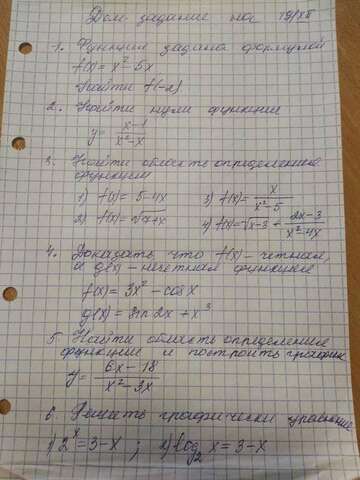 Дом задание на 19/XII
1. Функция задана формулой
f(x) = x² - 5x
Найти f(-2)
2. Найти нули функции
y = (x-1)/(x²-x)
3. Найти область определения
функции
1) f(x) = 5-4x 3) f(x) = x/(x²-5)
2) f(x) = √x+x 4) f(x) = √x-3 + (2x-3)/(x²-4x)
4. Доказать что f(x) - четная,
а g(x) - нечетная функция
f(x) = 3x² - cosx
g(x) = sin2x + x³
5. Найти область определения
функции и построить график
y = (6x-18)/(x²-3x)
6. Решить графически уравнение
1) 2ˣ = 3-x ; 2) log₂ x = 3-x